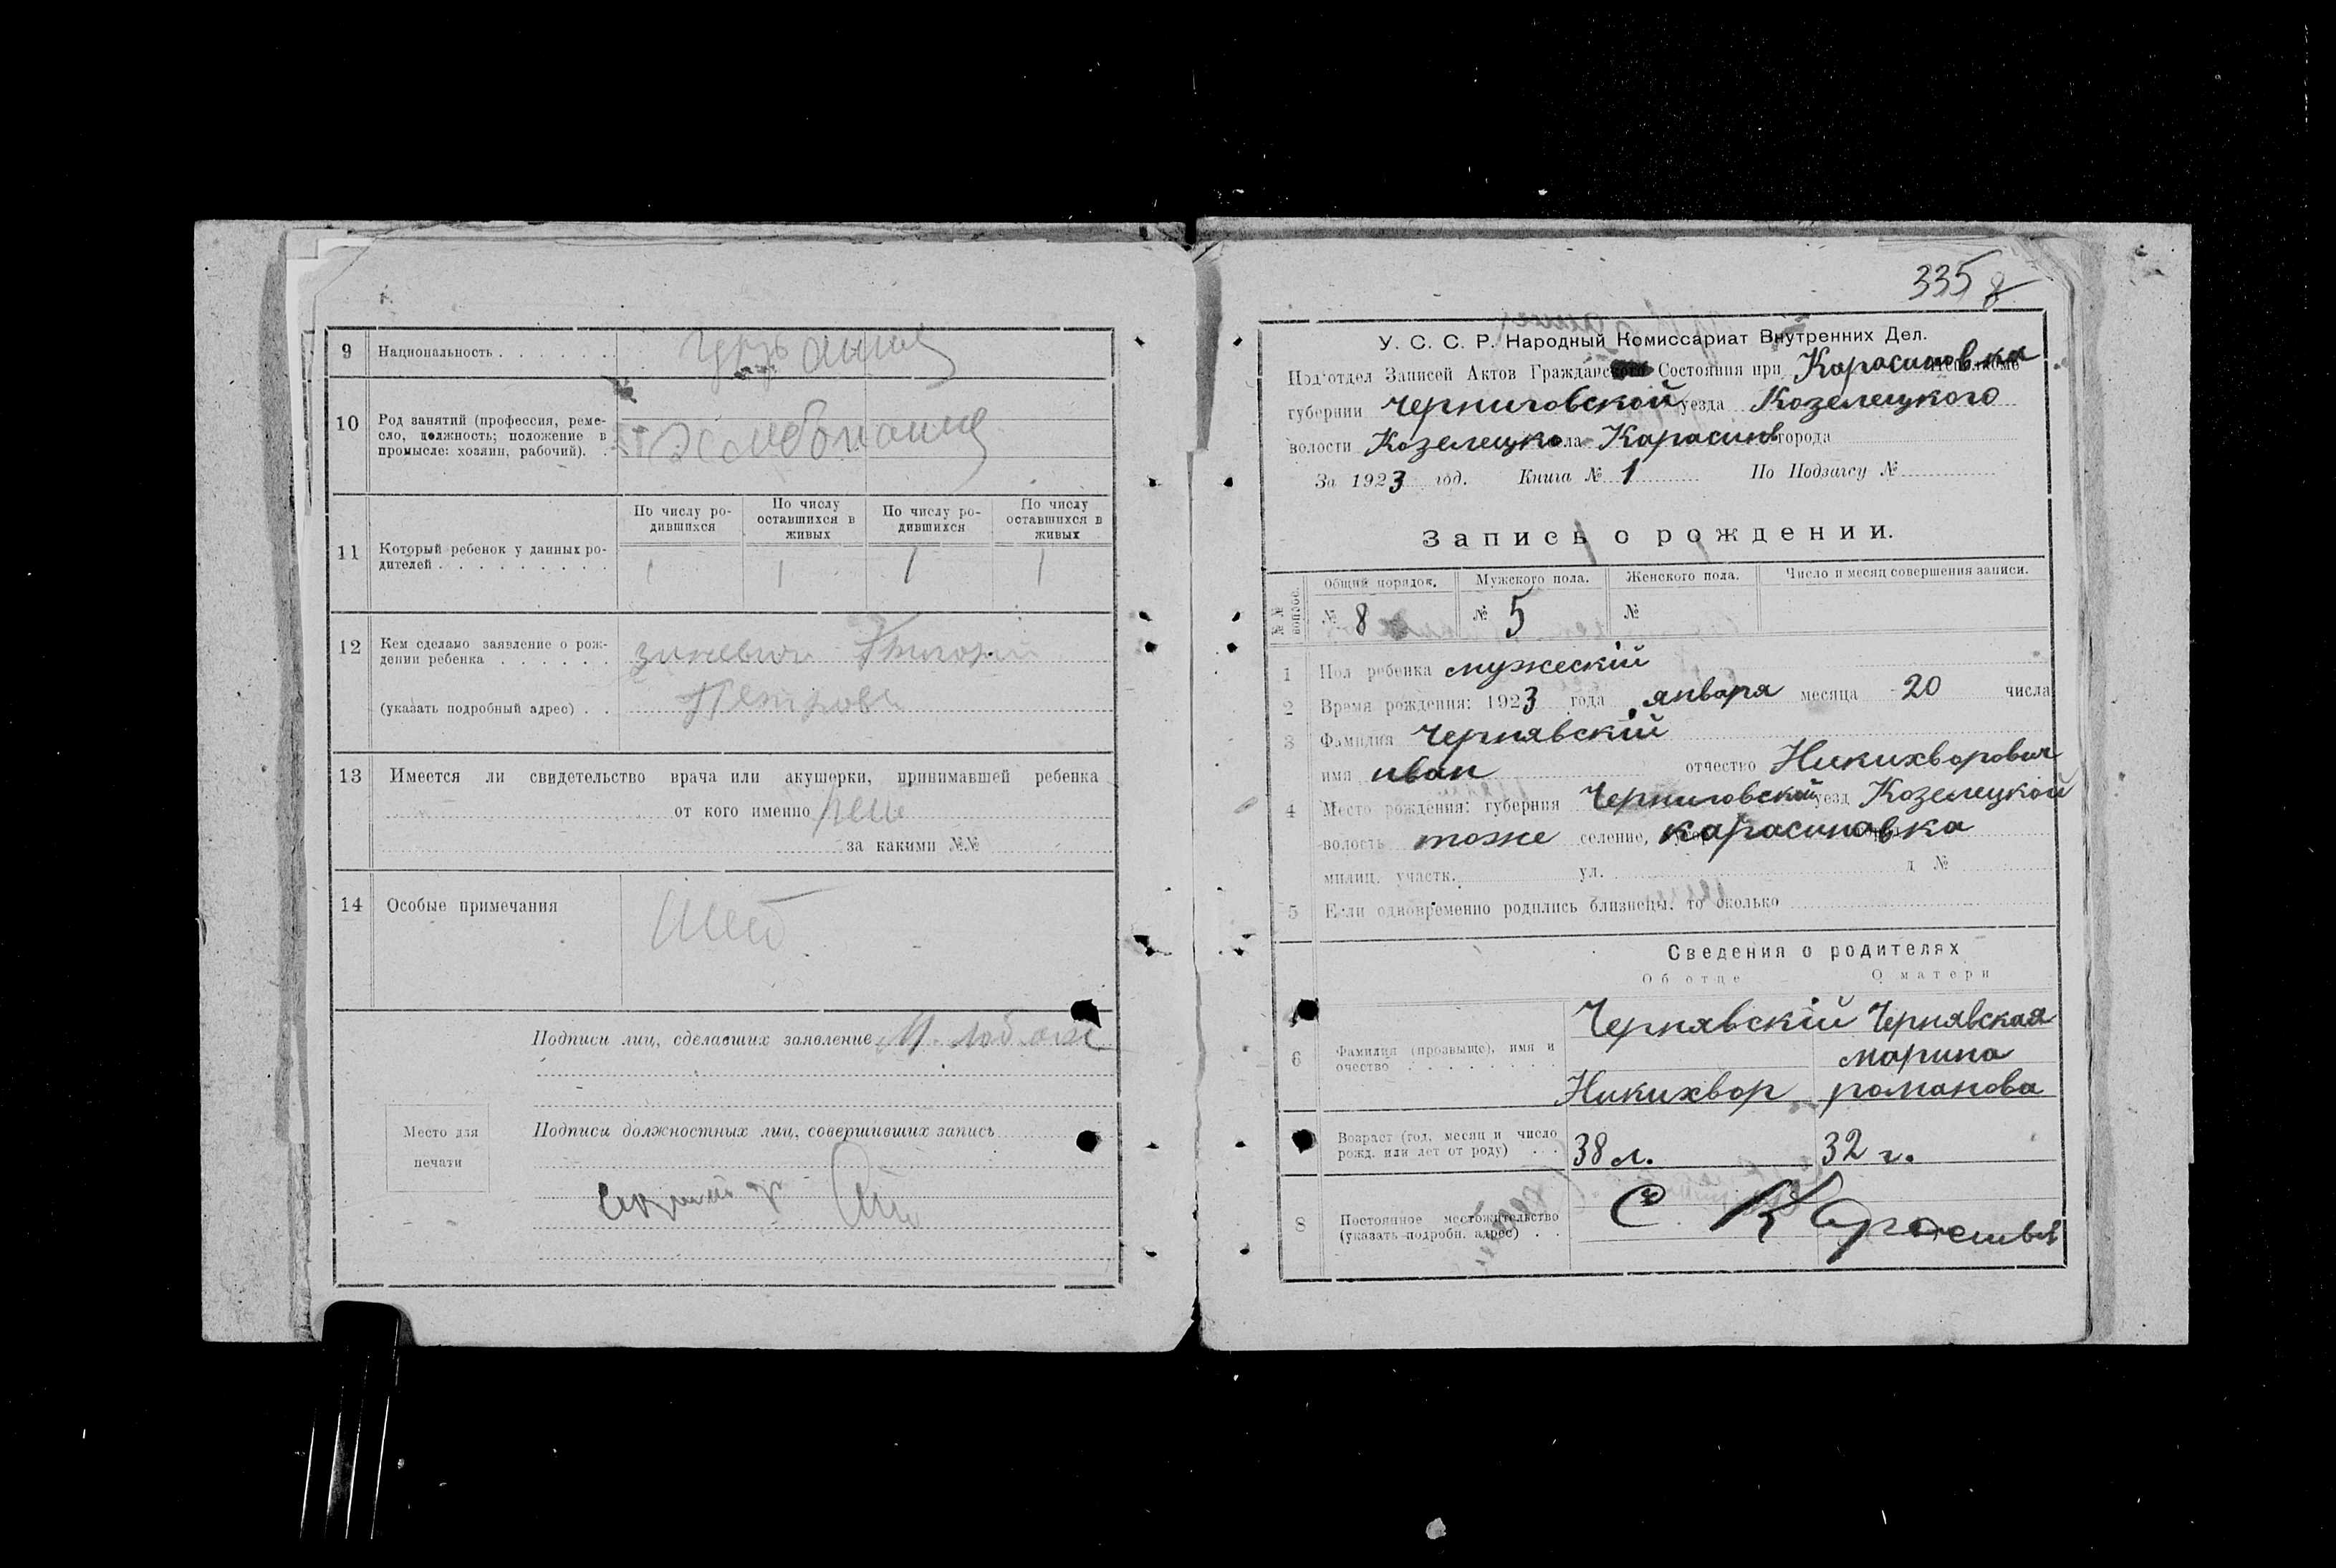 9 Национальность
10 Род занятий (профессия, реме-
сло, должность; положение в
промысле: хозяин, рабочий).
11 Который ребенок у данных ро-
дителей
По числу ро-
дившихся
По числу
оставшихся в
живых
По числу ро-
дившихся
По числу
оставшихся в
живых
1 1 1 1
12 Кем сделано заявление о рож-
дении ребенка
(указать подробный адрес)
13 Имеется ли свидетельство врача или акушерки, принимавшей ребенка
от кого именно
за какими №№
14 Особые примечания
Подписи лиц, сделавших заявление
Место для
печати
Подписи должностных лиц, совершивших запись
335 8
У. С. С. Р. Народный Комиссариат Внутренних Дел.
Под'отдел Записей Актов Гражданского Состояния при Карасиновка
губернии Черниговской уезда Козелецкого
волости Козелецко ла Карасинв города
За 1923 год. Книга № 1 По Подзагсу №
Запись о рождении.
№№ вопрос.
Общий порядок. Мужского пола. Женского пола. Число и месяц совершения записи.
№ 8 № 5 №
1 Пол ребенка мужескій
2 Время рождения: 1923 года января месяца 20 числа
3 Фамилия Чернявскій
имя иван отчество Никихворович
4 Место рождения: губерния Черниговской уезд Козелецкой
волость тоже селение, карасиновка
милиц. участк. ул. д №
5 Если одновременно родились близнецы, то сколько
Сведения о родителях
Об отце О матери
6 Фамилия (прозвыще), имя и
очество
Чернявскій Чернявская
марина
Никихвор романова
Возраст (год, месяц и число
рожд. или лет от роду)
38 л. 32 г.
8 Постоянное местожительство
(указать подробн. адрес)
С.